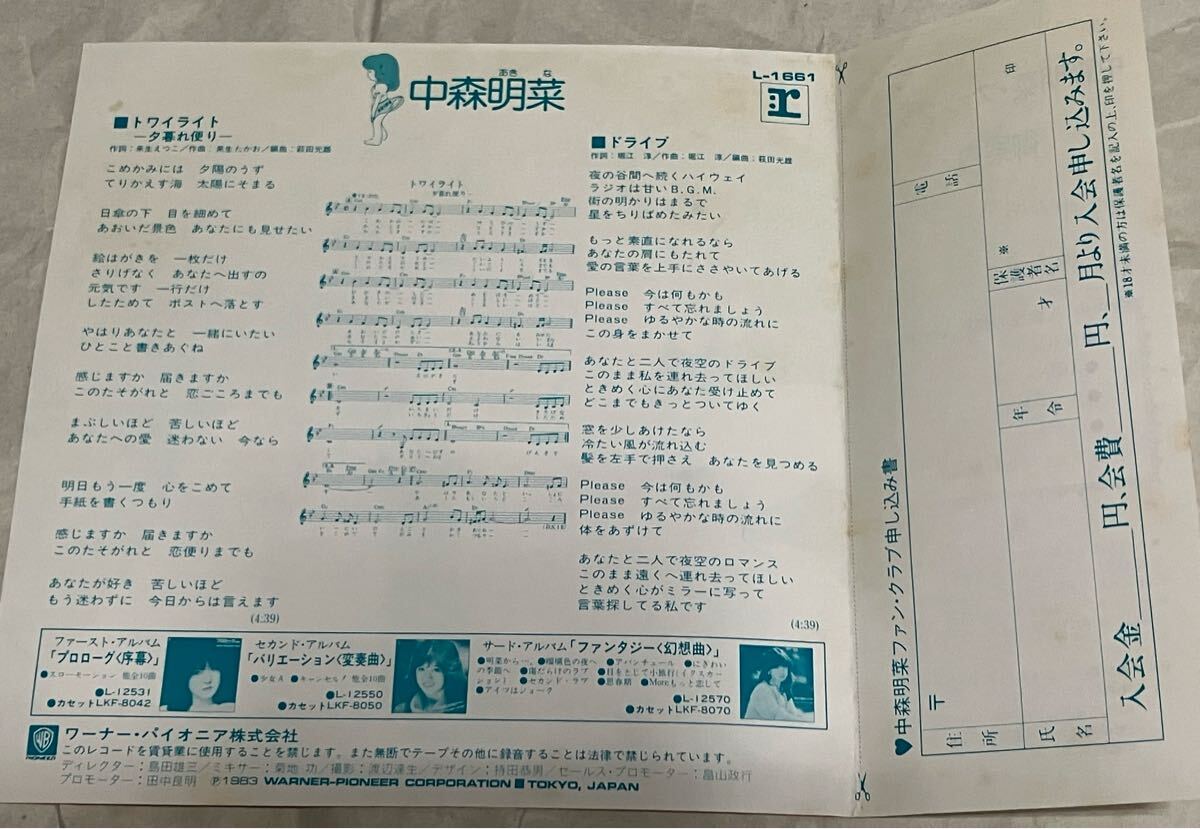 あき な
中森明菜
L-1661
■トワイライト
―夕暮れ便り―
作詞:来生えつこ/作曲:来生たかお/編曲:萩田光雄
こめかみには 夕陽のうず
てりかえす海 太陽にそまる
日傘の下 目を細めて
あおいだ景色 あなたにも見せたい
絵はがきを 一枚だけ
さりげなく あなたへ出すの
元気です 一行だけ
したためて ポストへ落とす
やはりあなたと 一緒にいたい
ひとこと書きあぐね
感じますか 届きますか
このたそがれと 恋ごころまでも
まぶしいほど 苦しいほど
あなたへの愛 迷わない 今なら
明日もう一度 心をこめて
手紙を書くつもり
感じますか 届きますか
このたそがれと 恋便りまでも
あなたが好き 苦しいほど
もう迷わずに 今日からは言えます
(4:39)
トワイライト
夕暮れ便り
■ドライブ
作詞:堀江 淳/作曲:堀江 淳/編曲:萩田光雄
夜の谷間へ続くハイウェイ
ラジオは甘いB.G.M.
街の明かりはまるで
星をちりばめたみたい
もっと素直になれるなら
あなたの肩にもたれて
愛の言葉を上手にささやいてあげる
Please 今は何もかも
Please すべて忘れましょう
Please ゆるやかな時の流れに
この身をまかせて
あなたと二人で夜空のドライブ
このまま私を連れ去ってほしい
ときめく心にあなた受け止めて
どこまでもきっとついてゆく
窓を少しあけたなら
冷たい風が流れ込む
髪を左手で押さえ あなたを見つめる
Please 今は何もかも
Please すべて忘れましょう
Please ゆるやかな時の流れに
体をあずけて
あなたと二人で夜空のロマンス
このまま遠くへ連れ去ってほしい
ときめく心がミラーに写って
言葉探してる私です
(4:39)
ファースト・アルバム
「プロローグ〈序幕〉」
●スローモーション 他全10曲
●L-12531
●カセットLKF-8042
セカンド・アルバム
「バリエーション〈変奏曲〉」
●少女A ●キャンセル! 他全10曲
●L-12550
●カセットLKF-8050
サード・アルバム「ファンタジー〈幻想曲〉」
●明菜から…。●瑠璃色の夜へ ●アバンチュール ●にぎわい
の季節へ ●傷だらけのラブ ●目をとじて小旅行(イクスカー
ション) ●セカンド・ラブ ●思春期 ●Moreもっと恋して
●アイツはジョーク
●L-12570
●カセットLKF-8070
WB
PIONEER
ワーナー・パイオニア株式会社
このレコードを賃貸業に使用することを禁じます。また無断でテープその他に録音することは法律で禁じられています。
ディレクター:島田雄三/ミキサー:菊地 功/撮影:渡辺達生/デザイン:持田恭男/セールス・プロモーター:畠山政行
プロモーター:田中良明 ℗1983 WARNER-PIONEER CORPORATION ■ TOKYO, JAPAN
♥中森明菜ファン・クラブ申し込み書
〒
住所
電話
氏名
年令
才
※保護者名
印
入会金 円、会費 円、 月より入会申し込みます。
※18才未満の方は保護者名を記入の上、印を押して下さい。